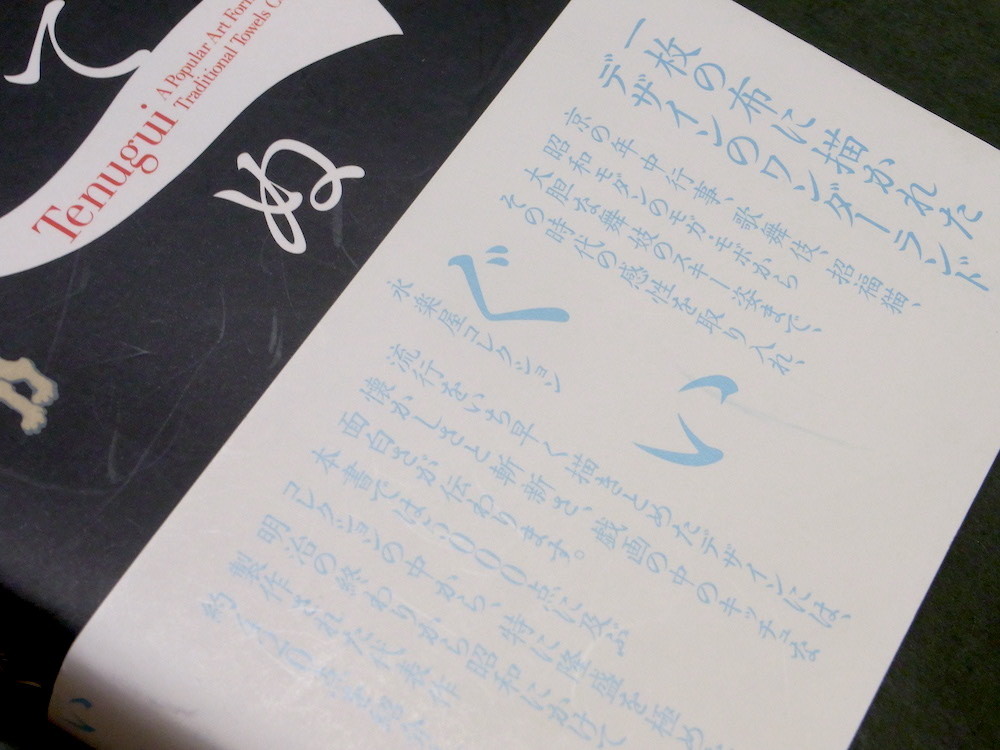 て
Tenugui
A Popular Art Form
Traditional Towels
ぬ
一枚の布に描かれた
デザインのワンダーランド
京の年中行事、歌舞伎、招福猫、
昭和モダンのモガ・モボから
大胆な舞妓のスキー姿まで、
その時代の感性を取り入れ、
ぐ
い
永楽屋コレクション
流行をいち早く描きとめたデザインには、
懐かしさと斬新さ、戯画の中のキッチュな
面白さが伝わります。
本書では
点に及ぶ
コレクションの中から、特に隆盛を極め、
明治の終わりから昭和にかけて
製作された代表作
約
い